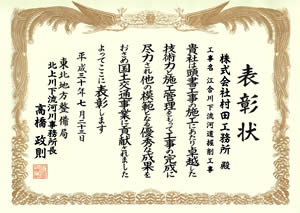 表彰状
株式会社村田工務所 殿
工事名 江合川下流河道掘削工事
貴社は頭書工事の施工にあたり卓越した
技術力と施工管理をもって工事の完成に
尽力され他の模範となる優秀な成果を
おさめ国土交通事業に貢献されました
よってここに表彰します
平成三十年七月二十三日
東北地方整備局
北上川下流河川事務所長
高橋政則